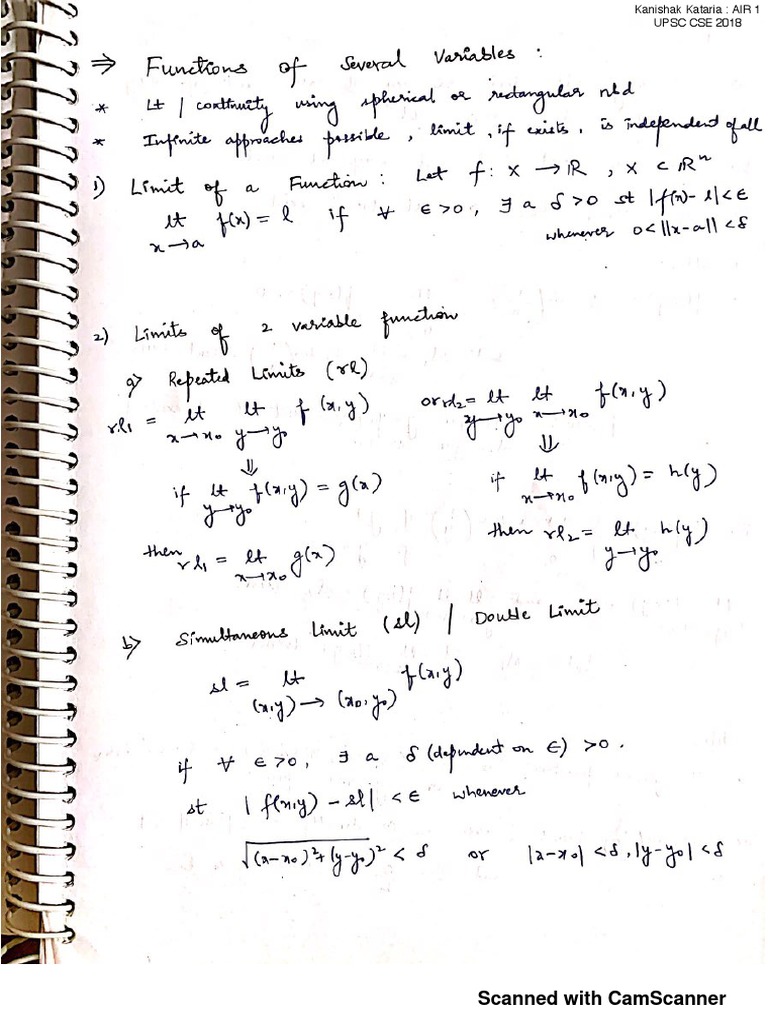 Kanishak Kataria : AIR 1
UPSC CSE 2018
⇒ Functions of Several Variables :
* Lt / continuity using spherical or rectangular nbd
* Infinite approaches possible, limit, if exists, is independent of all
1) Limit of a Function : Let f: X → ℝ, X ⊂ ℝⁿ
lt f(x) = l if ∀ ε>0, ∃ a δ>0 st |f(x)- l|<ε
x→a whenever 0<||x-a||<δ
2) Limits of 2 variable function
a) Repeated Limits (rl)
rl₁ = lt lt f(x,y) or rl₂ = lt lt f(x,y)
x→x₀ y→y₀ y→y₀ x→x₀
⇓ ⇓
if lt f(x,y) = g(x) if lt f(x,y) = h(y)
y→y₀ x→x₀
then rl₁ = lt g(x) then rl₂ = lt h(y)
x→x₀ y→y₀
b) Simultaneous Limit (sl) / Double Limit
sl = lt f(x,y)
(x,y) → (x₀,y₀)
if ∀ ε>0, ∃ a δ (dependent on ε) >0.
st |f(x,y) - sl| < ε whenever
√(x-x₀)²+(y-y₀)² < δ or |x-x₀| <δ, |y-y₀| <δ
Scanned with CamScanner